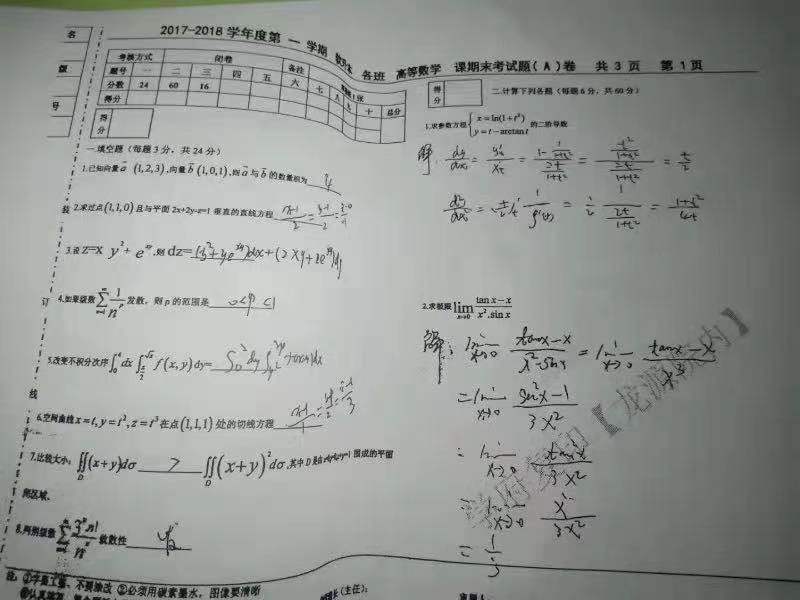 名
级
号
装
订
线
2017-2018 学年度第 一 学期 各班 高等数学 课期末考试题(A)卷 共 3 页 第 1 页
考核方式 闭卷 备注
题号 一 二 三 四 五 六 七 八 九 十 总分
分数 24 60 16
得分
得分
一 填空题(每题 3 分,共 24 分)
1.已知向量 a (1,2,3),向量 b (1,0,1),则 a 与 b 的数量积为 4
2.求过点(1,1,0)且与平面 2x+2y-z=1 垂直的直线方程 (x-1)/2=(y-1)/2=(z-0)/-1
3.设 z=x y²+ e^{xy},则 dz=(y²+ye^{xy})dx+(2xy+xe^{xy})dy
4.如果级数 ∑ 1/n^p 发散,则 p 的范围是 0<p≤1
5.改变不积分次序 ∫₀⁴ dx ∫ f(x,y)dy=
6.空间曲线 x=t,y=t²,z=t³ 在点(1,1,1) 处的切线方程 (x-1)/1=(y-1)/2=(z-1)/3
7.比较大小: ∬_D (x+y)dσ > ∬_D (x+y)²dσ,其中 D 是由 围成的平面
闭区域.
8.判别级数 ∑ 3ⁿn!/nⁿ 敛散性
得分
二.计算下列各题(每题 6 分,共 60 分)
1.求参数方程{x=ln(1+t²) y=t-arctan t 的二阶导数
解: dy/dx = y't/x't = (1-1/(1+t²))/(2t/(1+t²)) = (t²/(1+t²))/(2t/(1+t²)) = t/2
= 1/2 · 1/(2t/(1+t²)) = (1+t²)/4t
2.求极限 lim x→0 (tan x-x)/(x².sin x)
解: lim x→0 (tanx-x)/(x²sinx) = lim x→0 (tanx-x)/x³
= lim x→0 (sec²x-1)/3x²
= lim x→0 tan²x/3x²
= lim x→0 x²/3x²
= 1/3
【龙源校内】
注: ①字迹工整、不要涂改 ②必须用碳素墨水,图像要清晰
(主任):